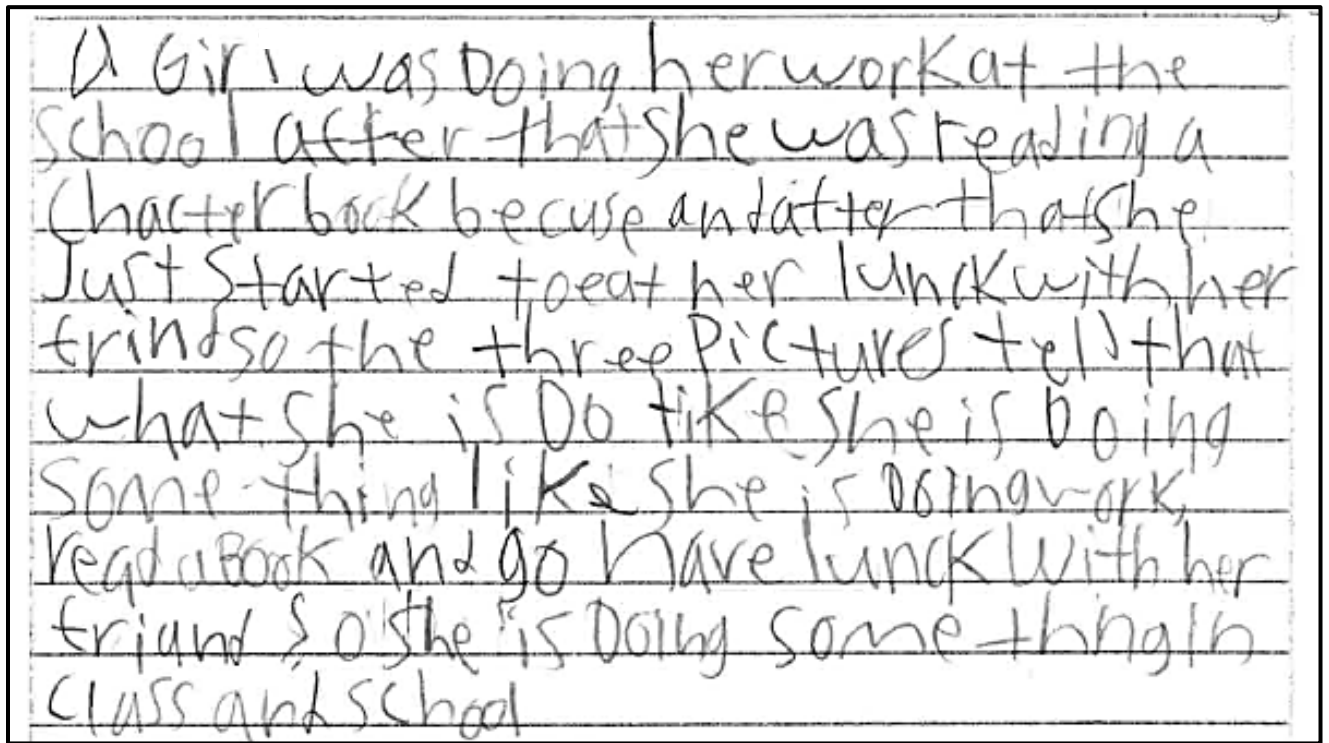 A Girl was Doing her work at the
School after that she was reading a
Chacter book becuse and atter that she
Just Started to eat her lunck with her
frind so the three Pictures tells that
what she is Do like she is Doing
some thing like she is Doing work,
read a Book and go have lunck with her
friand So she is Doing some thngin
class and school